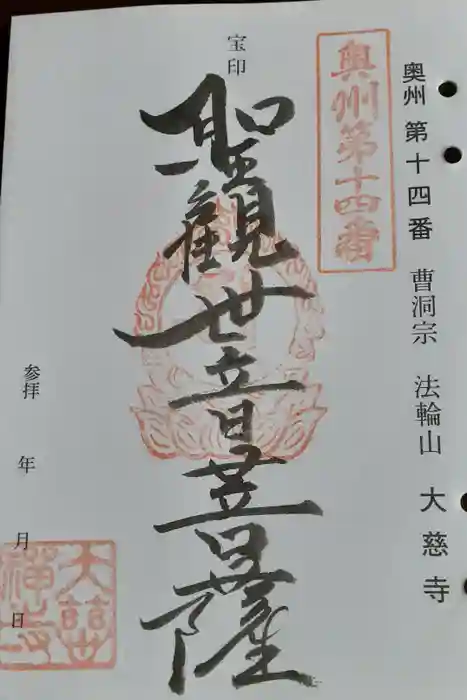 奥州 第十四番 曹洞宗 法輪山 大慈寺
奥州第十四番
宝印
聖観世音菩薩
参拝 年 月 日
大慈
禅寺